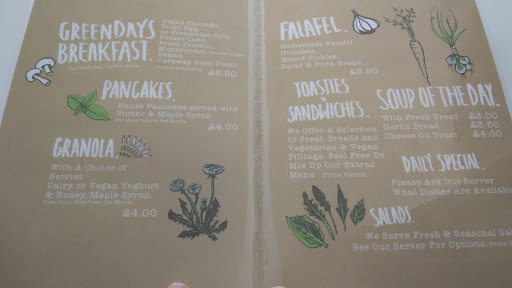 GREENDAY'S
BREAKFAST.
Vegan Sausage,
Fried Egg
or Scrambled Tofu
Potato Cake,
Fried Tomato,
Mushrooms,
Beans
Caraway Seed Toast
£5.50
PANCAKES.
House Pancakes served with
Butter & Maple Syrup
£4.00
GRANOLA.
With A Choice of
Berries
Dairy or Vegan Yoghurt
& Honey/Maple Syrup.
£4.00
FALAFEL.
Homemade Falafel
Hummus,
Mixed Pickles,
Salad & Pitta Bread
£5.50
TOASTIES
SANDWICHES.
We Offer A Selection
Of Fresh Breads and
Vegetarian & Vegan
Fillings. Feel Free To
Mix Up Our Extras
Menu Price Varies
SOUP OF THE DAY.
With Fresh Bread £3.00
Garlic Bread £3.50
Cheese On Toast £4.00
DAILY SPECIAL.
Please Ask Our Server
What Dishes Are Available
SALADS.
We Serve Fresh & Seasonal
See Our Server For Options.